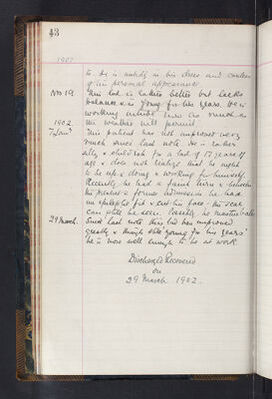 43
1901
to. He is untidy in his dress and careless
of his personal appearance.
Nov 19. This lad is rather better but lacks
balance & is young for his years. He is
working outside now as much as
the weather will permit.
1902.
7 Jany. This patient has not improved very
much since last note. He is rather
silly & childish for a lad of 17 years of
age & does not realize that he ought
to be up & doing & working for himself.
Recently he had a faint turn &
the patient & former he had
an epileptic fit & cut his face - the scar
can still be seen. Possibly he
29 March. Since last note this lad has improved
greatly & though still 'young for his years'
he is now well enough to be at work.
Discharged Recovered
on
29 March 1902.